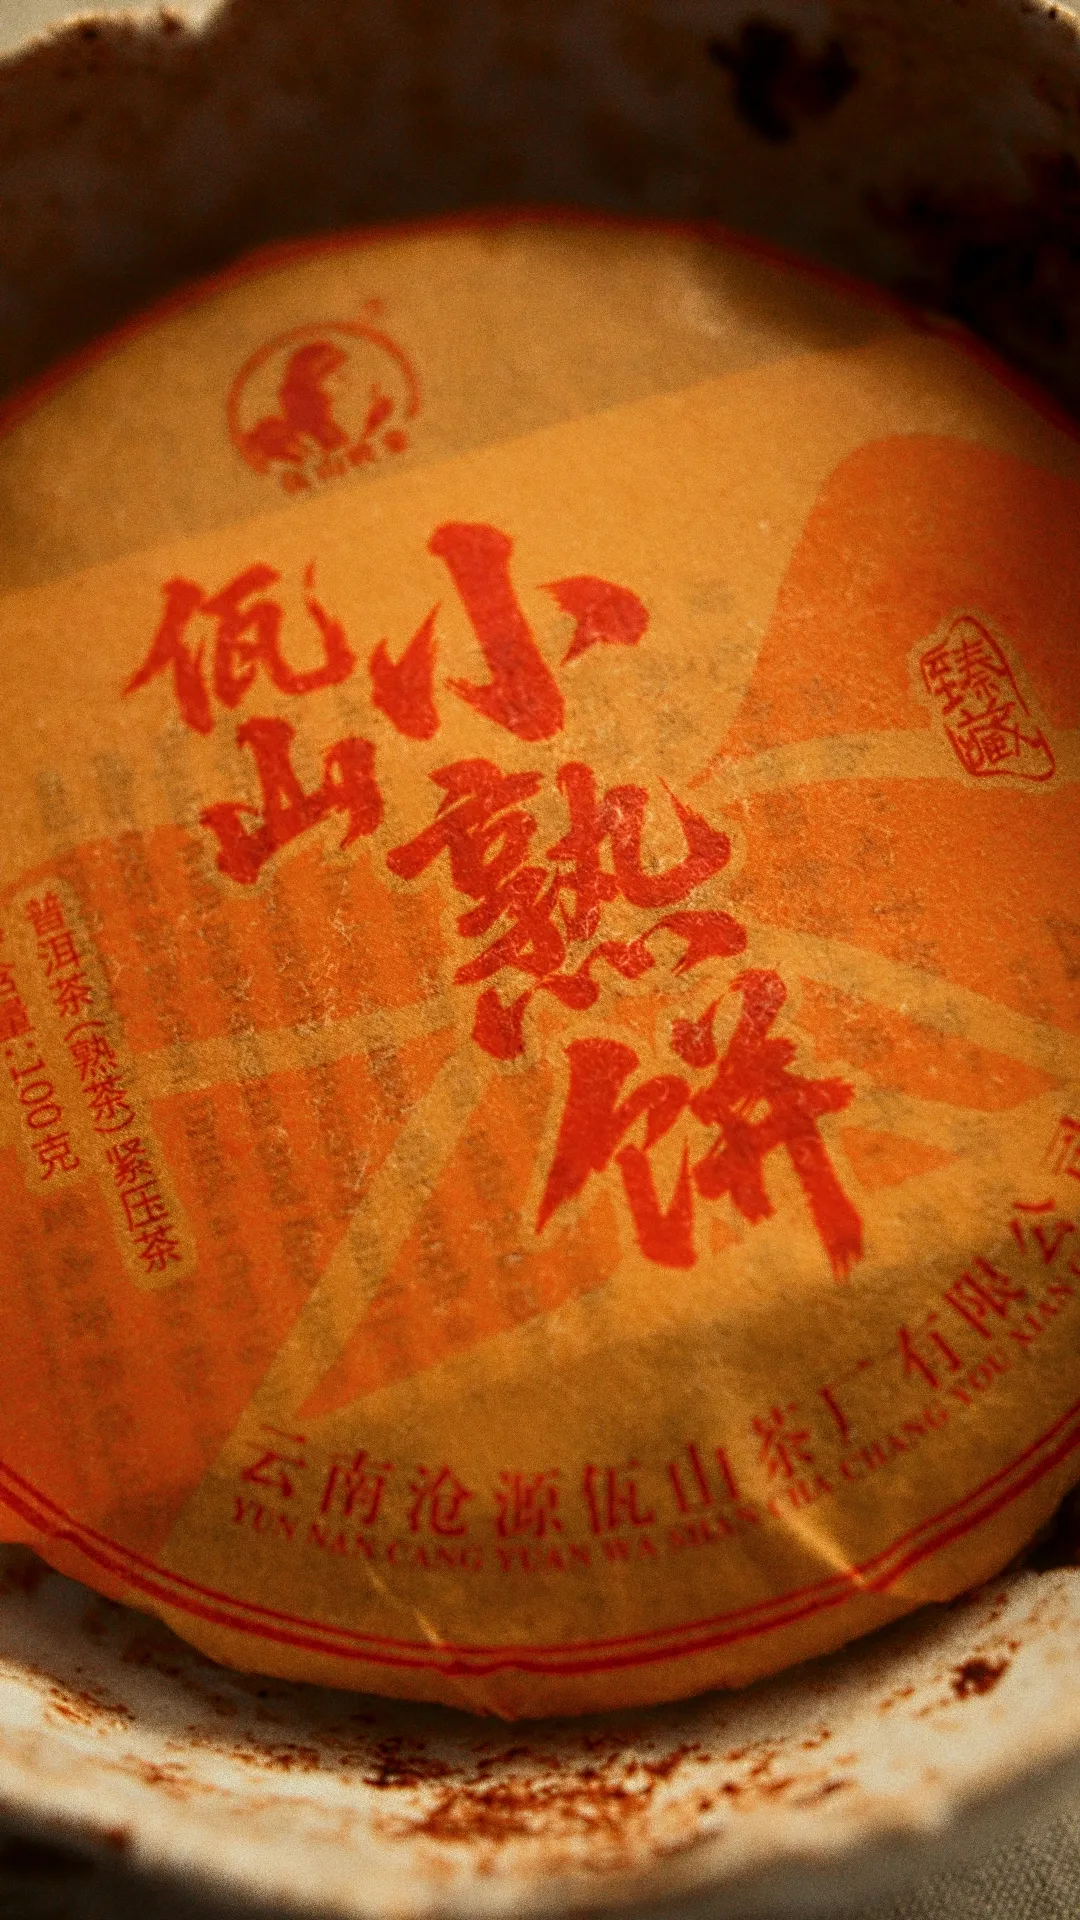 佤山
小熟饼
臻藏
普洱茶(熟茶)紧压茶
净含量:100克
云南沧源佤山茶厂有限公司
YUN NAN CANG YUAN WA SHAN CHA CHANG YOU XIAN